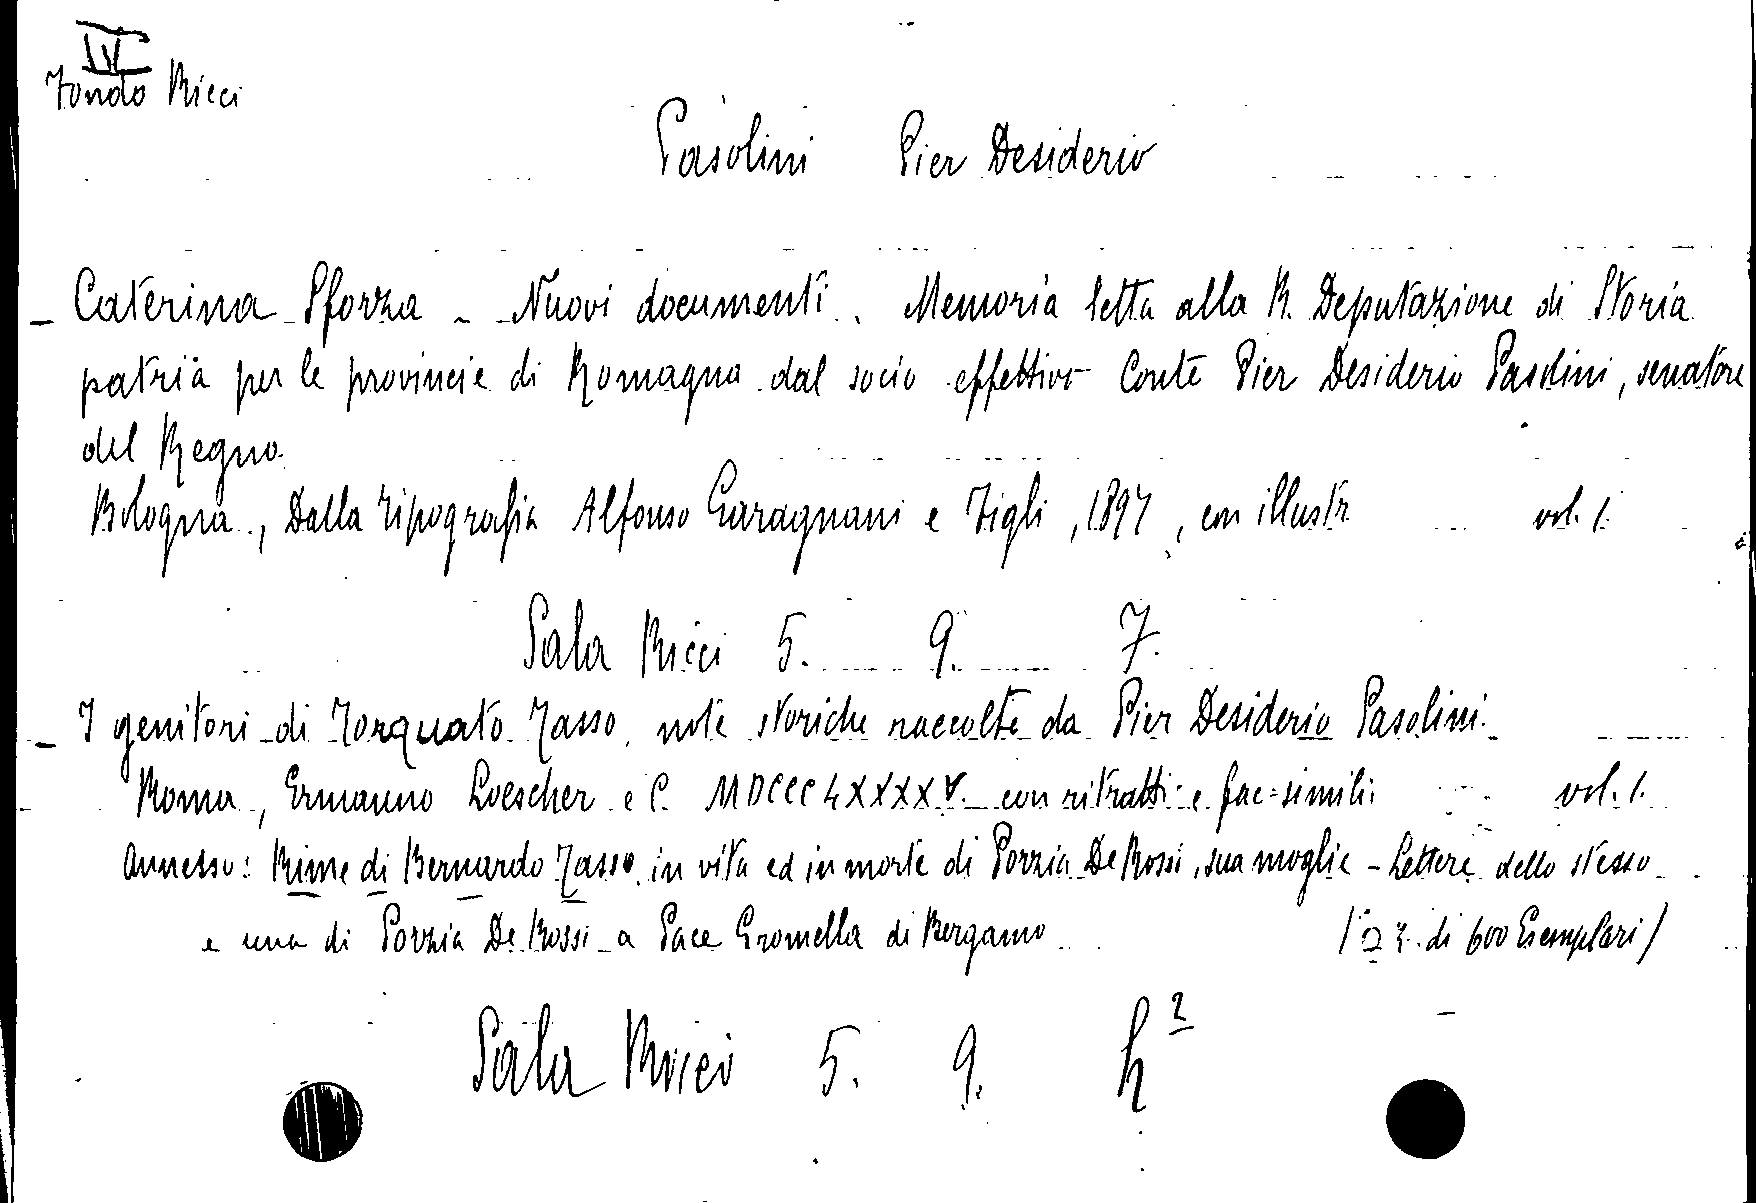 IV
Fondo Ricci
Pasolini Pier Desiderio
- Caterina Sforza - Nuovi documenti. Memoria letta alla R. Deputazione di Storia
patria per le provincie di Romagna dal socio effettivo Conte Pier Desiderio Pasolini, senatore
del Regno
Bologna, Dalla tipografia Alfonso Garagnani e Figli, 1897, con illustr vol. 1.
Sala Ricci 5. 9. 7.
- I genitori di Torquato Tasso, note storiche raccolte da Pier Desiderio Pasolini.
Roma, Ermanno Loescher e C. MDCCCLXXXXV. con ritratti e fac=simili vol. 1.
Annesso: Rime di Bernardo Tasso in vita ed in morte di Porzia De Rossi, sua moglie - Lettere dello stesso
e una di Porzia De Rossi a Pace Gromella di Bergamo di 600 Esemplari/
Sala Ricci 5. 9. h²